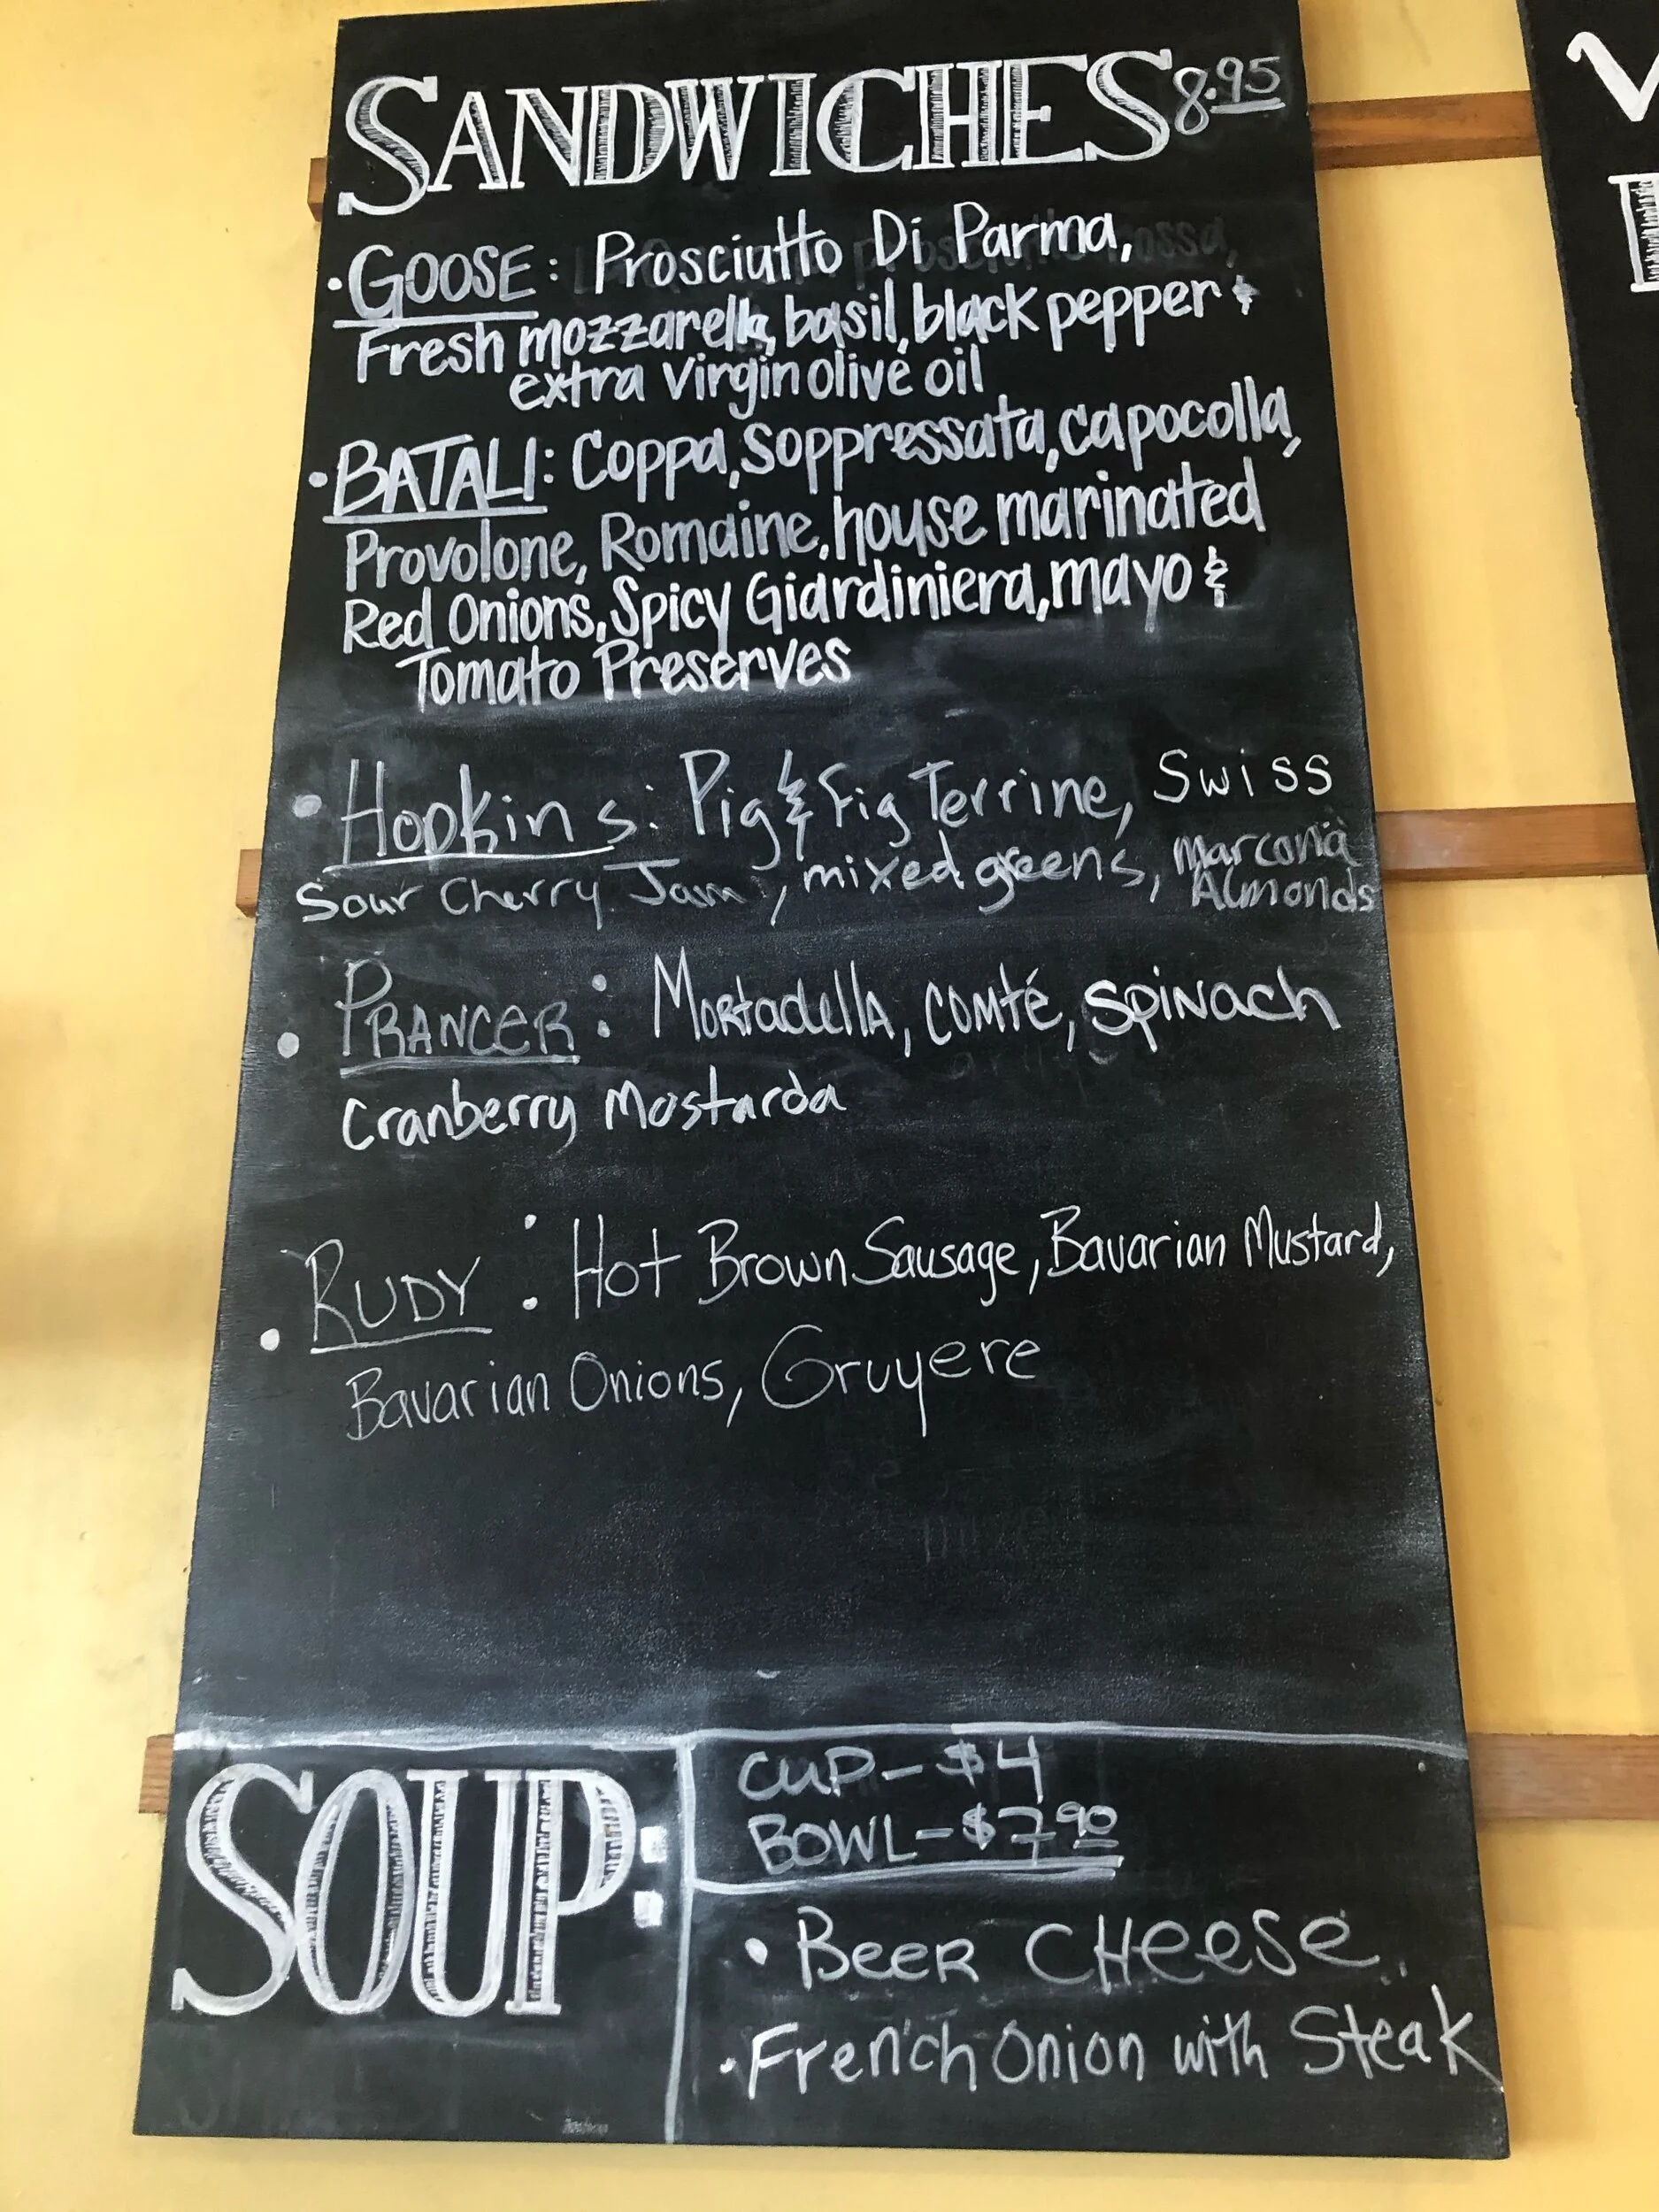 SANDWICHES 8.95
• GOOSE: Prosciutto Di Parma,
Fresh mozzarella, basil, black pepper &
extra virgin olive oil
• BATALI: Coppa, Soppressata, capocolla,
Provolone, Romaine, house marinated
Red Onions, Spicy Giardiniera, mayo &
Tomato Preserves
• Hopkins: Pig & Fig Terrine, Swiss
Sour Cherry Jam, mixed greens, Marcona
Almonds
• PRANCER: Mortadella, Comté, Spinach
Cranberry Mostarda
• RUDY: Hot Brown Sausage, Bavarian Mustard,
Bavarian Onions, Gruyere
SOUP:
CUP - $4
BOWL - $7.90
• BEER CHEESE
• French Onion with Steak